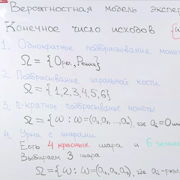 Вероятностная модель экспер
Конечное число исходов
1. Однократное подбрасывание моне
Ω = {Орел, Решка}
2. Подбрасывание игральной кости
Ω = {1, 2, 3, 4, 5, 6}
3. n-кратное подбрасывание монеты
Ω = {ω: ω = (a₁, a₂, ..., aₙ), где aᵢ = 0 или
4. Урна с шарами
Есть 4 красных шара и 6 зелен
Выбираем 3 шара
Ω = {ω: ω = (a₁, a₂, a₃), где